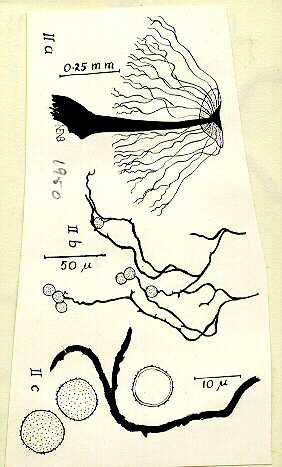 II a
0.25 mm
1950
II b
50 μ
II c
10 μ